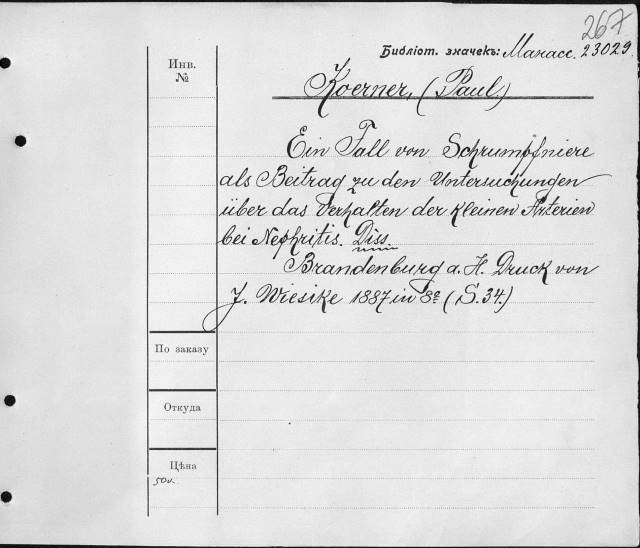 267
Библіот. значекъ: Манасс. 23029.
Инв.
№
Koerner, (Paul.)
Ein Fall von Schrumpfniere
als Beitrag zu den Untersuchungen
über das Verhalten der kleinen Arterien
bei Nephritis. Diss.
Brandenburg a. H. Druck von
J. Wiesike 1887 in 8º (S. 34.)
По заказу
Откуда
Цѣна
50